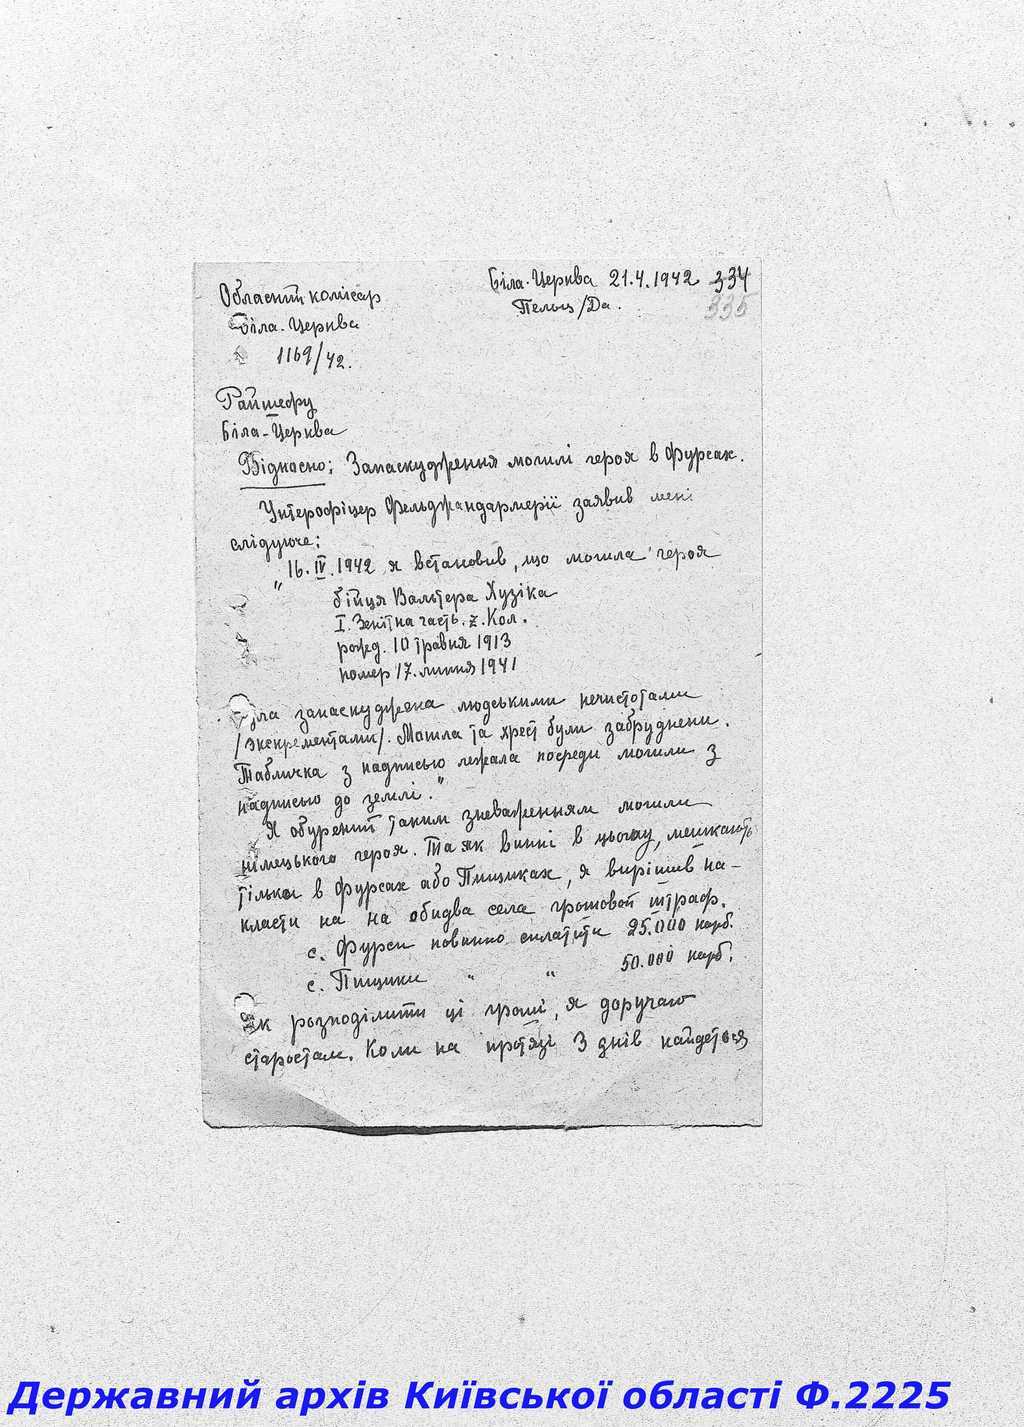 Біла-Церква 21.4.1942 334
Пельц/Да. 335
Обласний комісар
Біла-Церква
1169/42.
Райшефу
Біла-Церква
Відносно: Запаскудження могилі героя в Фурсах.
Унтерофіцер Фельджандармерії заявив мені
слідуюче:
"16.IV.1942 я встановив, що могила героя
бійця Вальтера Хузіка
I. Зенітна часть. z. Кол.
рожд. 10 травня 1913
помер 17. липня 1941
запаскуджена людськими нечистотами
/экскрементами/. Могила та хрест були забруднени.
Табличка з надписью лежала посреди могили з
надписью до землі."
Я обурений таким зневаженням могили
німецького героя. Та як винні в цьому, мешкають
тільки в Фурсах або Пищиках, я вирішив на-
класти на на обидва села грошовой штраф.
с. Фурси повинно сплатити 25.000 карб.
с. Пищики " " 50.000 карб.
Як розподілити ці гроші, я доручаю
старостам. Коли на протязі 3 днів найдеться
Державний архів Київської області Ф.2225